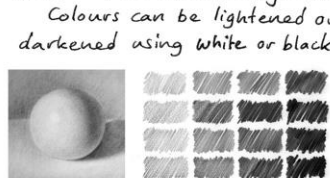 Colours can be lightened or
darkened using white or black